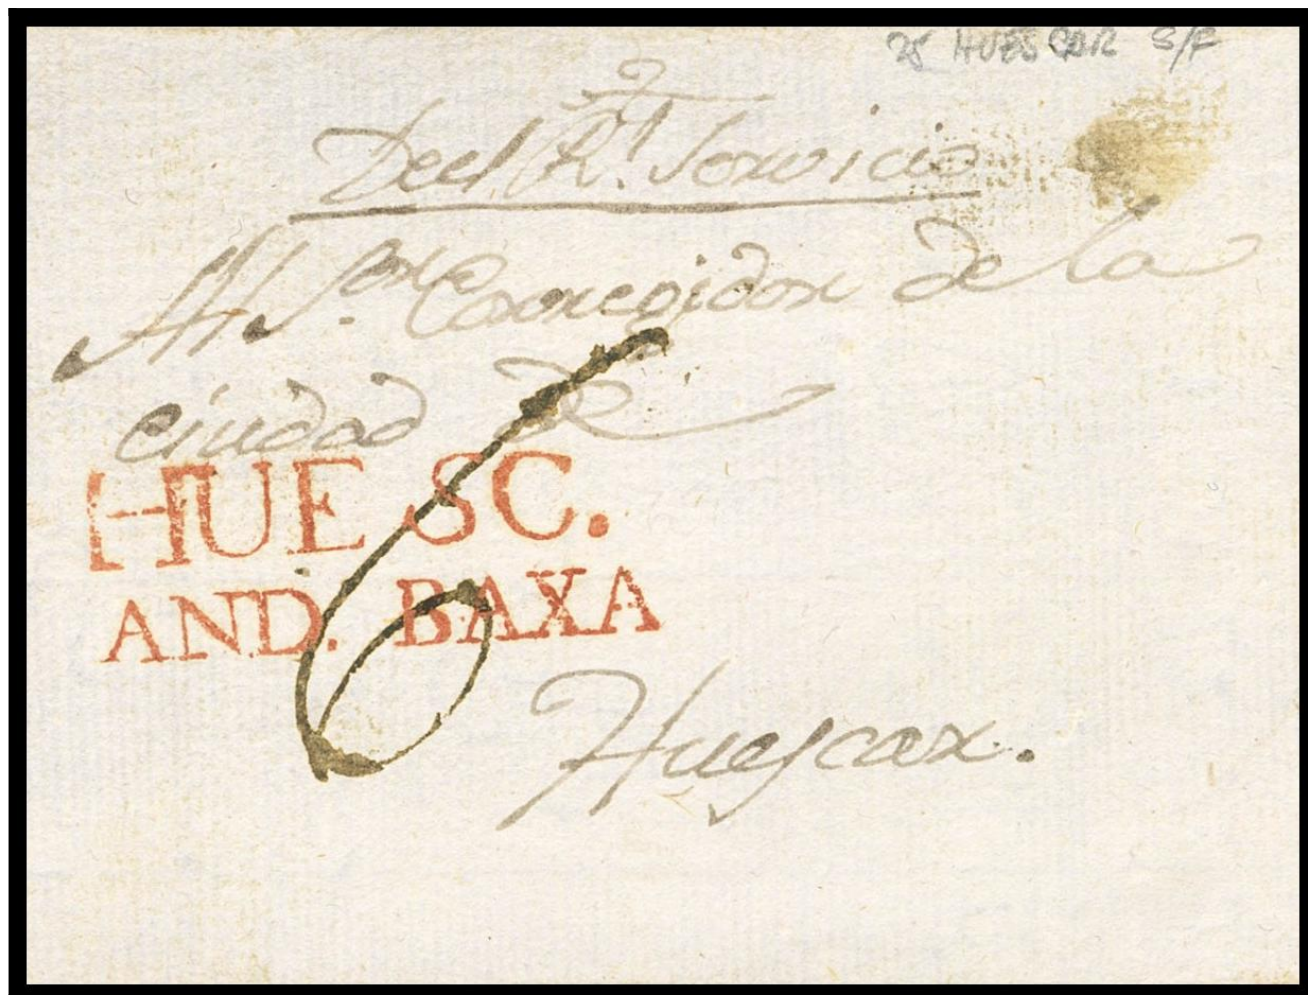 28 HUESCAR S/F
Del Rl. Servicio
Al Sor. Corregidor de la
ciudad de
HUESC.
AND. BAXA
6
Huescar.